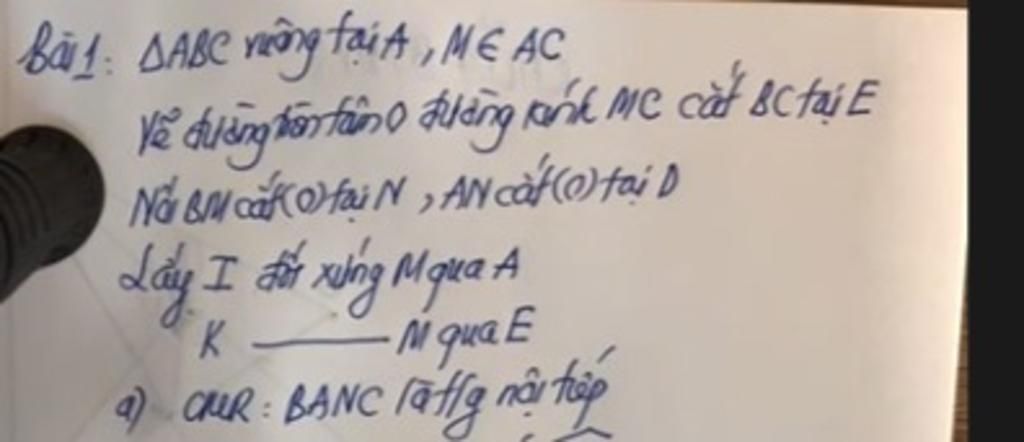 Bài 1: ΔABC vuông tại A, M ∈ AC
Vẽ đường tròn tâm O đường kính MC cắt BC tại E
Nối BM cắt (O) tại N, AN cắt (O) tại D
Lấy I đối xứng M qua A
K —— M qua E
a) CMR: BANC là t/g nội tiếp